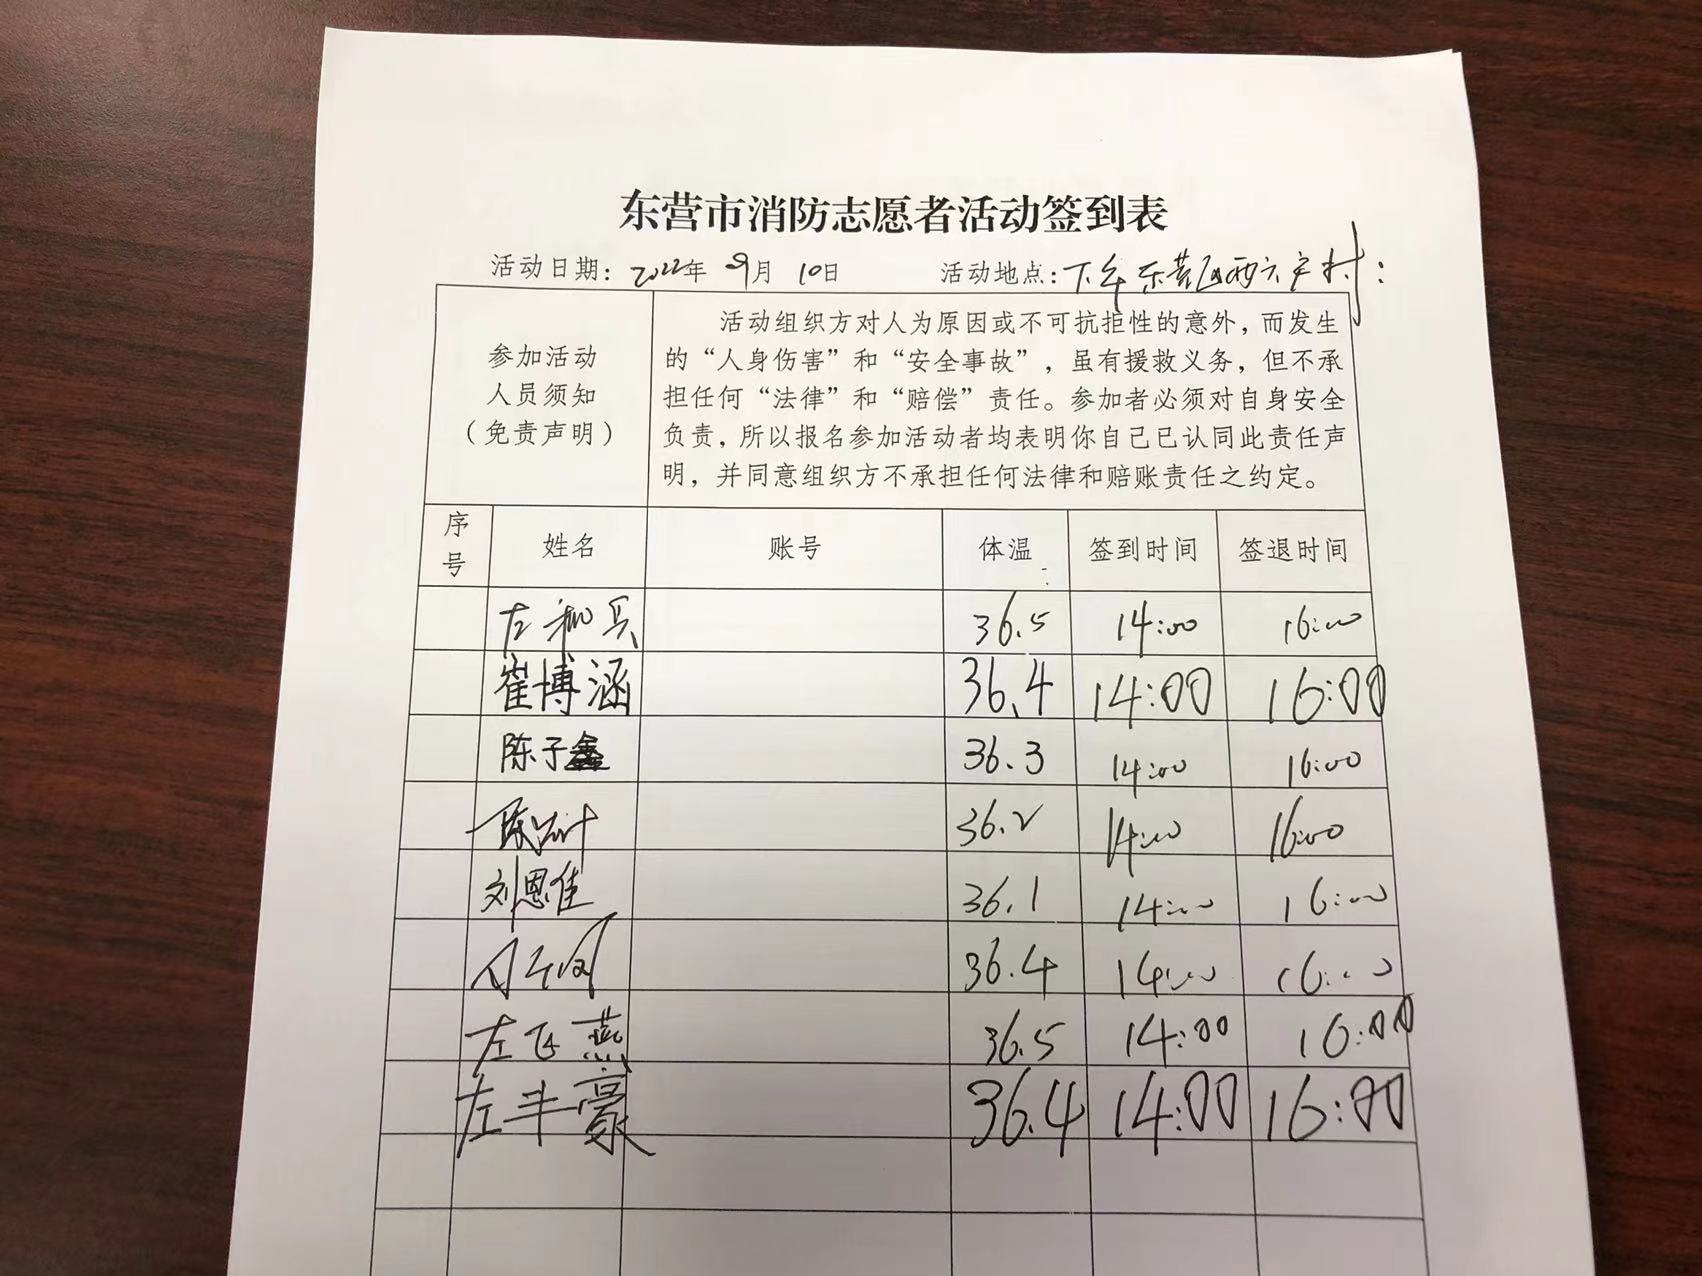 东营市消防志愿者活动签到表
活动日期: 2022年 9月 10日 活动地点: 下午东营区西六户村:
参加活动
人员须知
(免责声明)
活动组织方对人为原因或不可抗拒性的意外,而发生
的“人身伤害”和“安全事故”,虽有援救义务,但不承
担任何“法律”和“赔偿”责任。参加者必须对自身安全
负责,所以报名参加活动者均表明你自己已认同此责任声
明,并同意组织方不承担任何法律和赔账责任之约定。
序号 姓名 账号 体温 签到时间 签退时间
左 兵 36.5 14:00 16:00
崔博涵 36.4 14:00 16:00
陈子鑫 36.3 14:00 16:00
陈 叶 36.2 14:00 16:00
刘恩佳 36.1 14:00 16:00
36.4 14:00 16:00
左飞燕 36.5 14:00 16:00
左丰豪 36.4 14:00 16:00